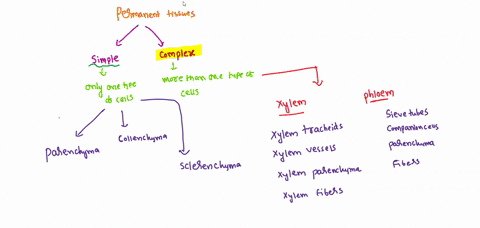 Permanent tissues
Simple
Complex
only one type
of cells
more than one type of
cells
Parenchyma
Collenchyma
Sclerenchyma
Xylem
Xylem tracheids
Xylem vessels
Xylem parenchyma
Xylem Fibers
phloem
Sieve tubes
Companion cells
parenchyma
Fibers